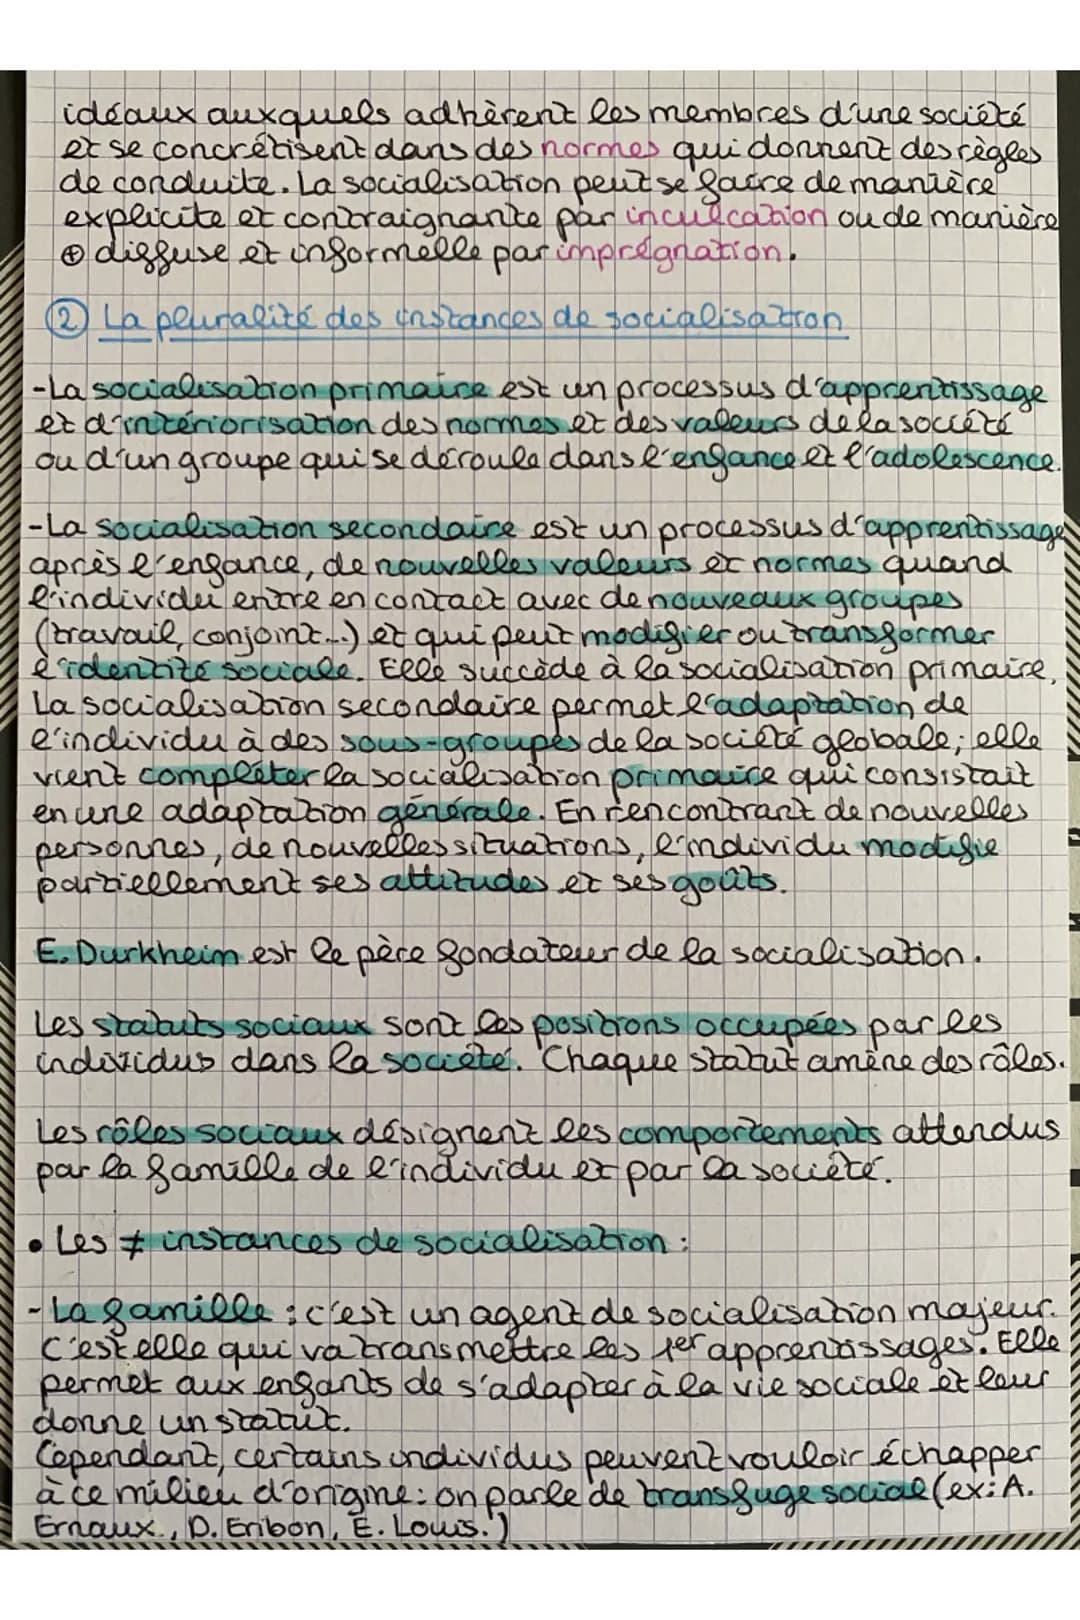 idéaux auxquels adhèrent les membres d'une société
et se concrétisent dans des normes qui donnent des règles
de conduite. La socialisation peut se faire de manière
explicite et contraignante par inculcation ou de manière
⊕ diffuse et informelle par imprégnation.
② La pluralité des instances de socialisation
-La socialisation primaire est un processus d'apprentissage
et d'intériorisation des normes et des valeurs de la société
ou d'un groupe qui se déroule dans l'enfance et l'adolescence.
-La socialisation secondaire est un processus d'apprentissage
après l'enfance, de nouvelles valeurs et normes quand
l'individu entre en contact avec de nouveaux groupes
(travail, conjoint...) et qui peut modifier ou transformer
l'identité sociale. Elle succède à la socialisation primaire.
La socialisation secondaire permet l'adaptation de
l'individu à des sous-groupes de la société globale; elle
vient compléter la socialisation primaire qui consistait
en une adaptation générale. En rencontrant de nouvelles
personnes, de nouvelles situations, l'individu modifie
partiellement ses attitudes et ses goûts.
E. Durkheim est le père fondateur de la socialisation.
Les statuts sociaux sont les positions occupées par les
individus dans la société. Chaque statut amène des rôles.
Les rôles sociaux désignent les comportements attendus
par la famille de l'individu et par la société.
• Les ≠ instances de socialisation :
-La famille : c'est un agent de socialisation majeur.
C'est elle qui va transmettre les 1er apprentissages. Elle
permet aux enfants de s'adapter à la vie sociale et leur
donne un statut.
Cependant, certains individus peuvent vouloir échapper
à ce milieu d'origine: on parle de transfuge social (ex: A.
Ernaux., D. Eribon, E. Louis.)